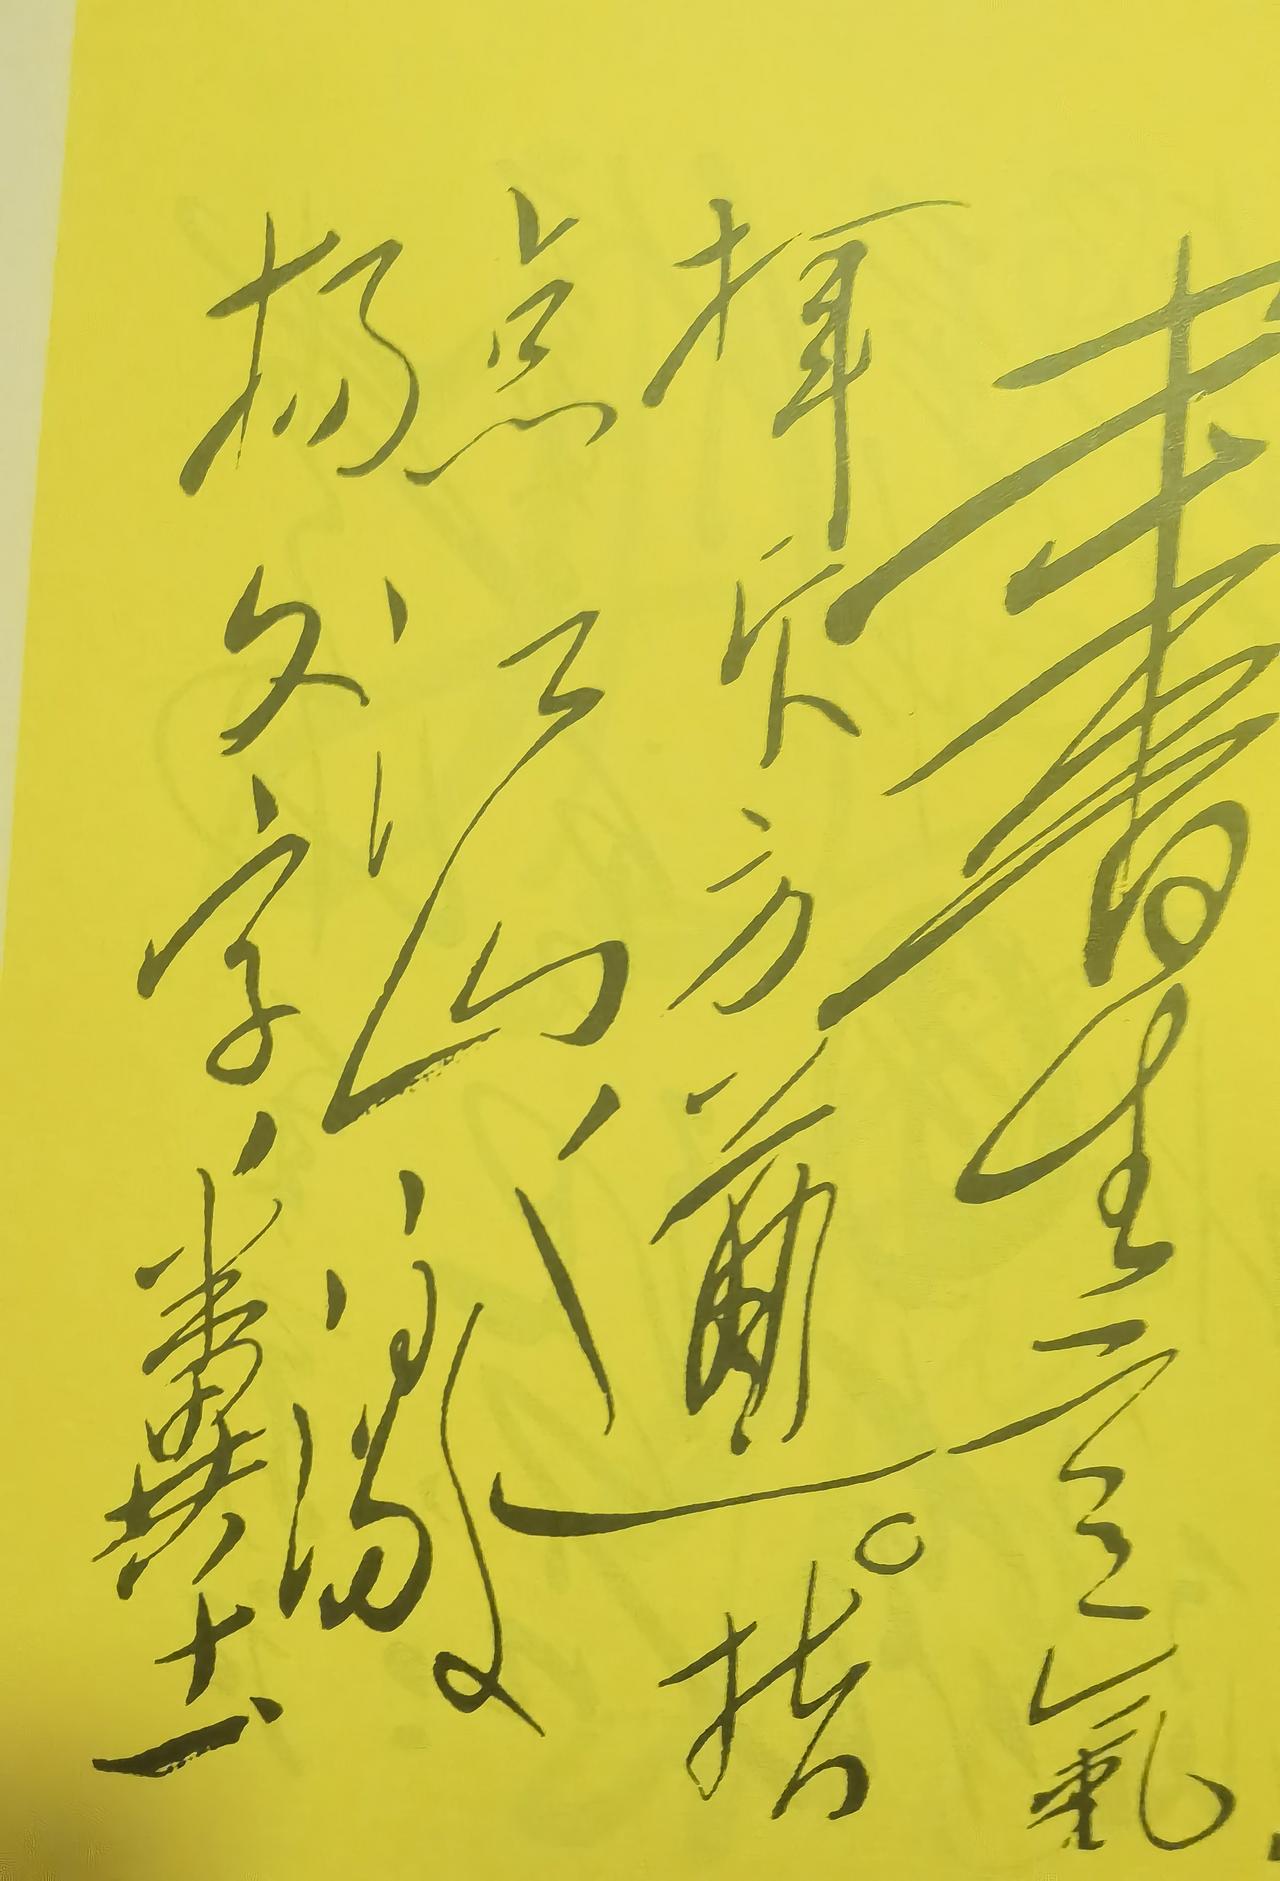 书生意氣
揮斥方遒。指
点江山，激
揚文字，粪土